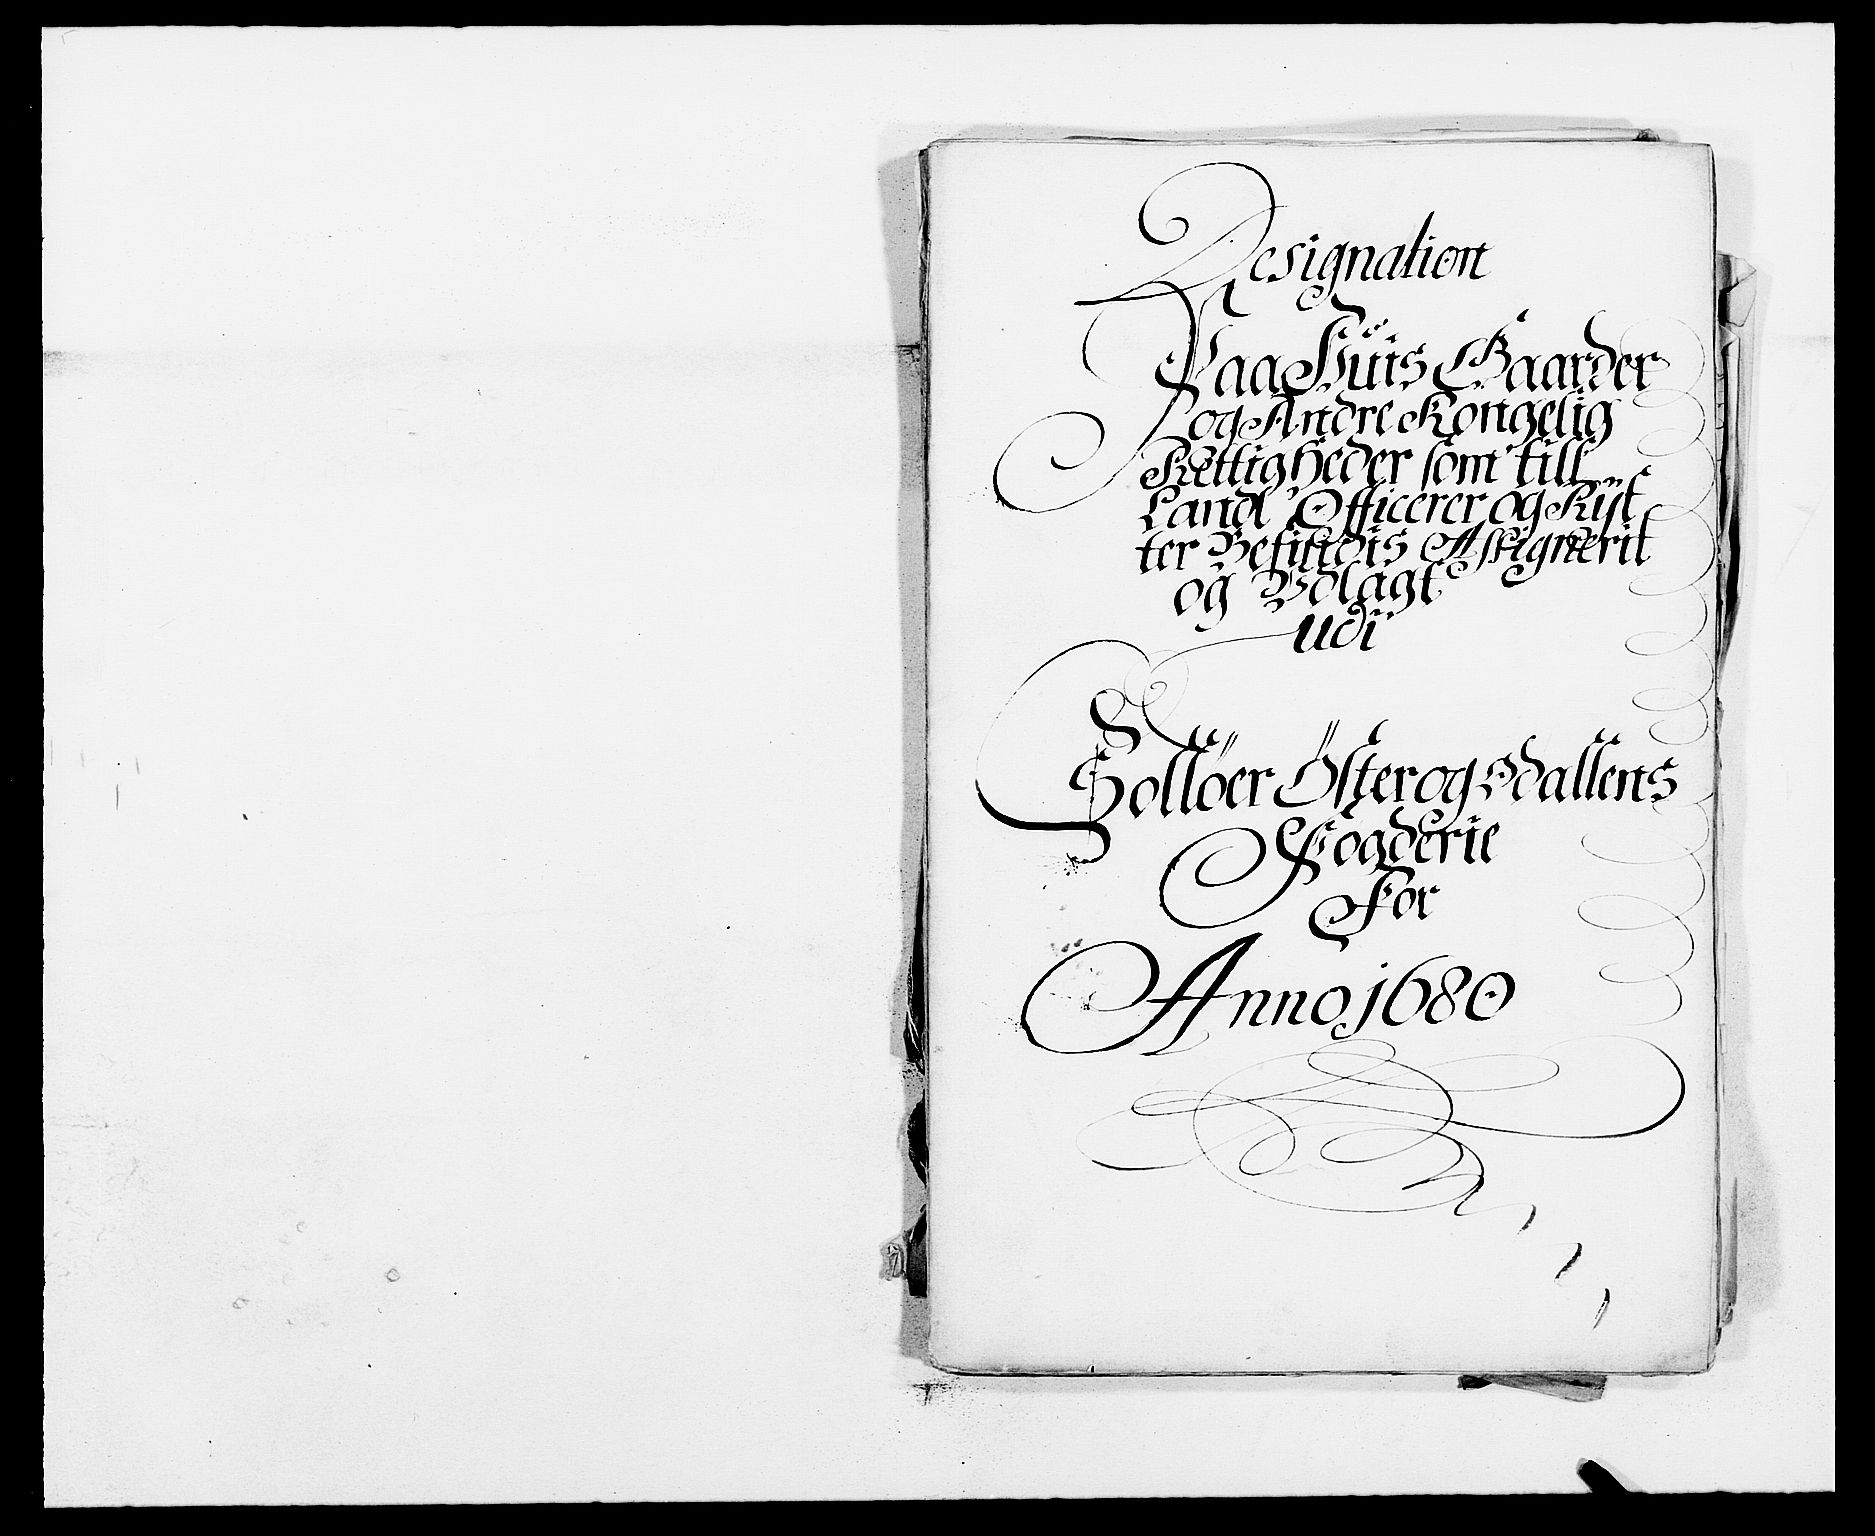 Designation
Paa Huus Gaarder
og Andre Kongelig
Rettigheder som till
Landt Officerer og Ryt
ter Besittdis Assignerit
og Udlagt
udi
Solløer Öster og Odallens
Fogderie
For
Anno 1680